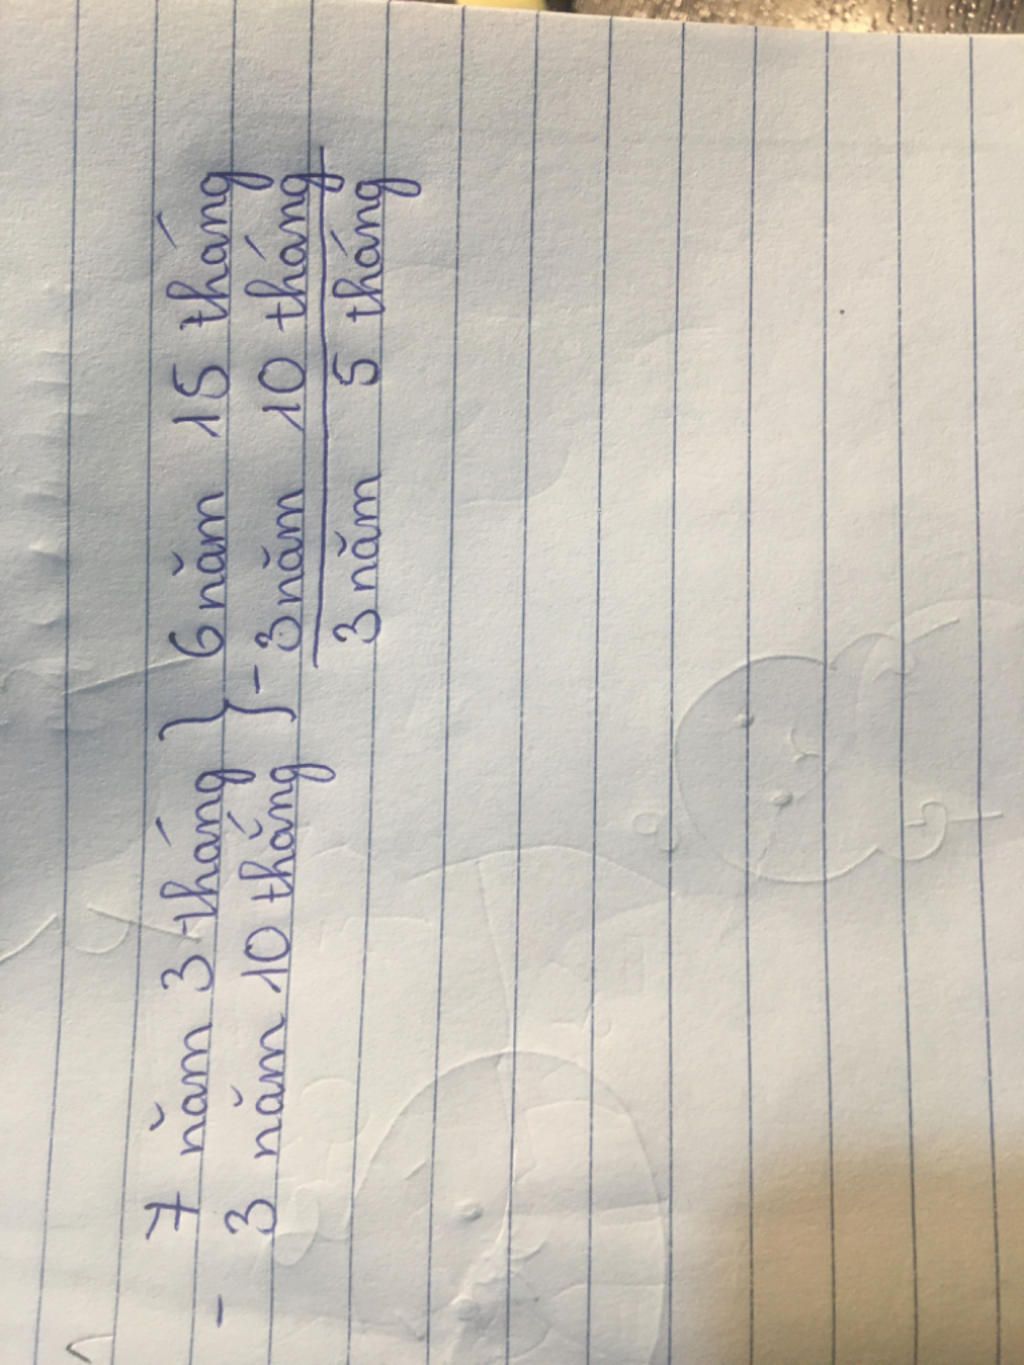 7 năm 3 tháng } 6 năm 15 tháng
- 3 năm 10 tháng } - 3 năm 10 tháng
3 năm 5 tháng